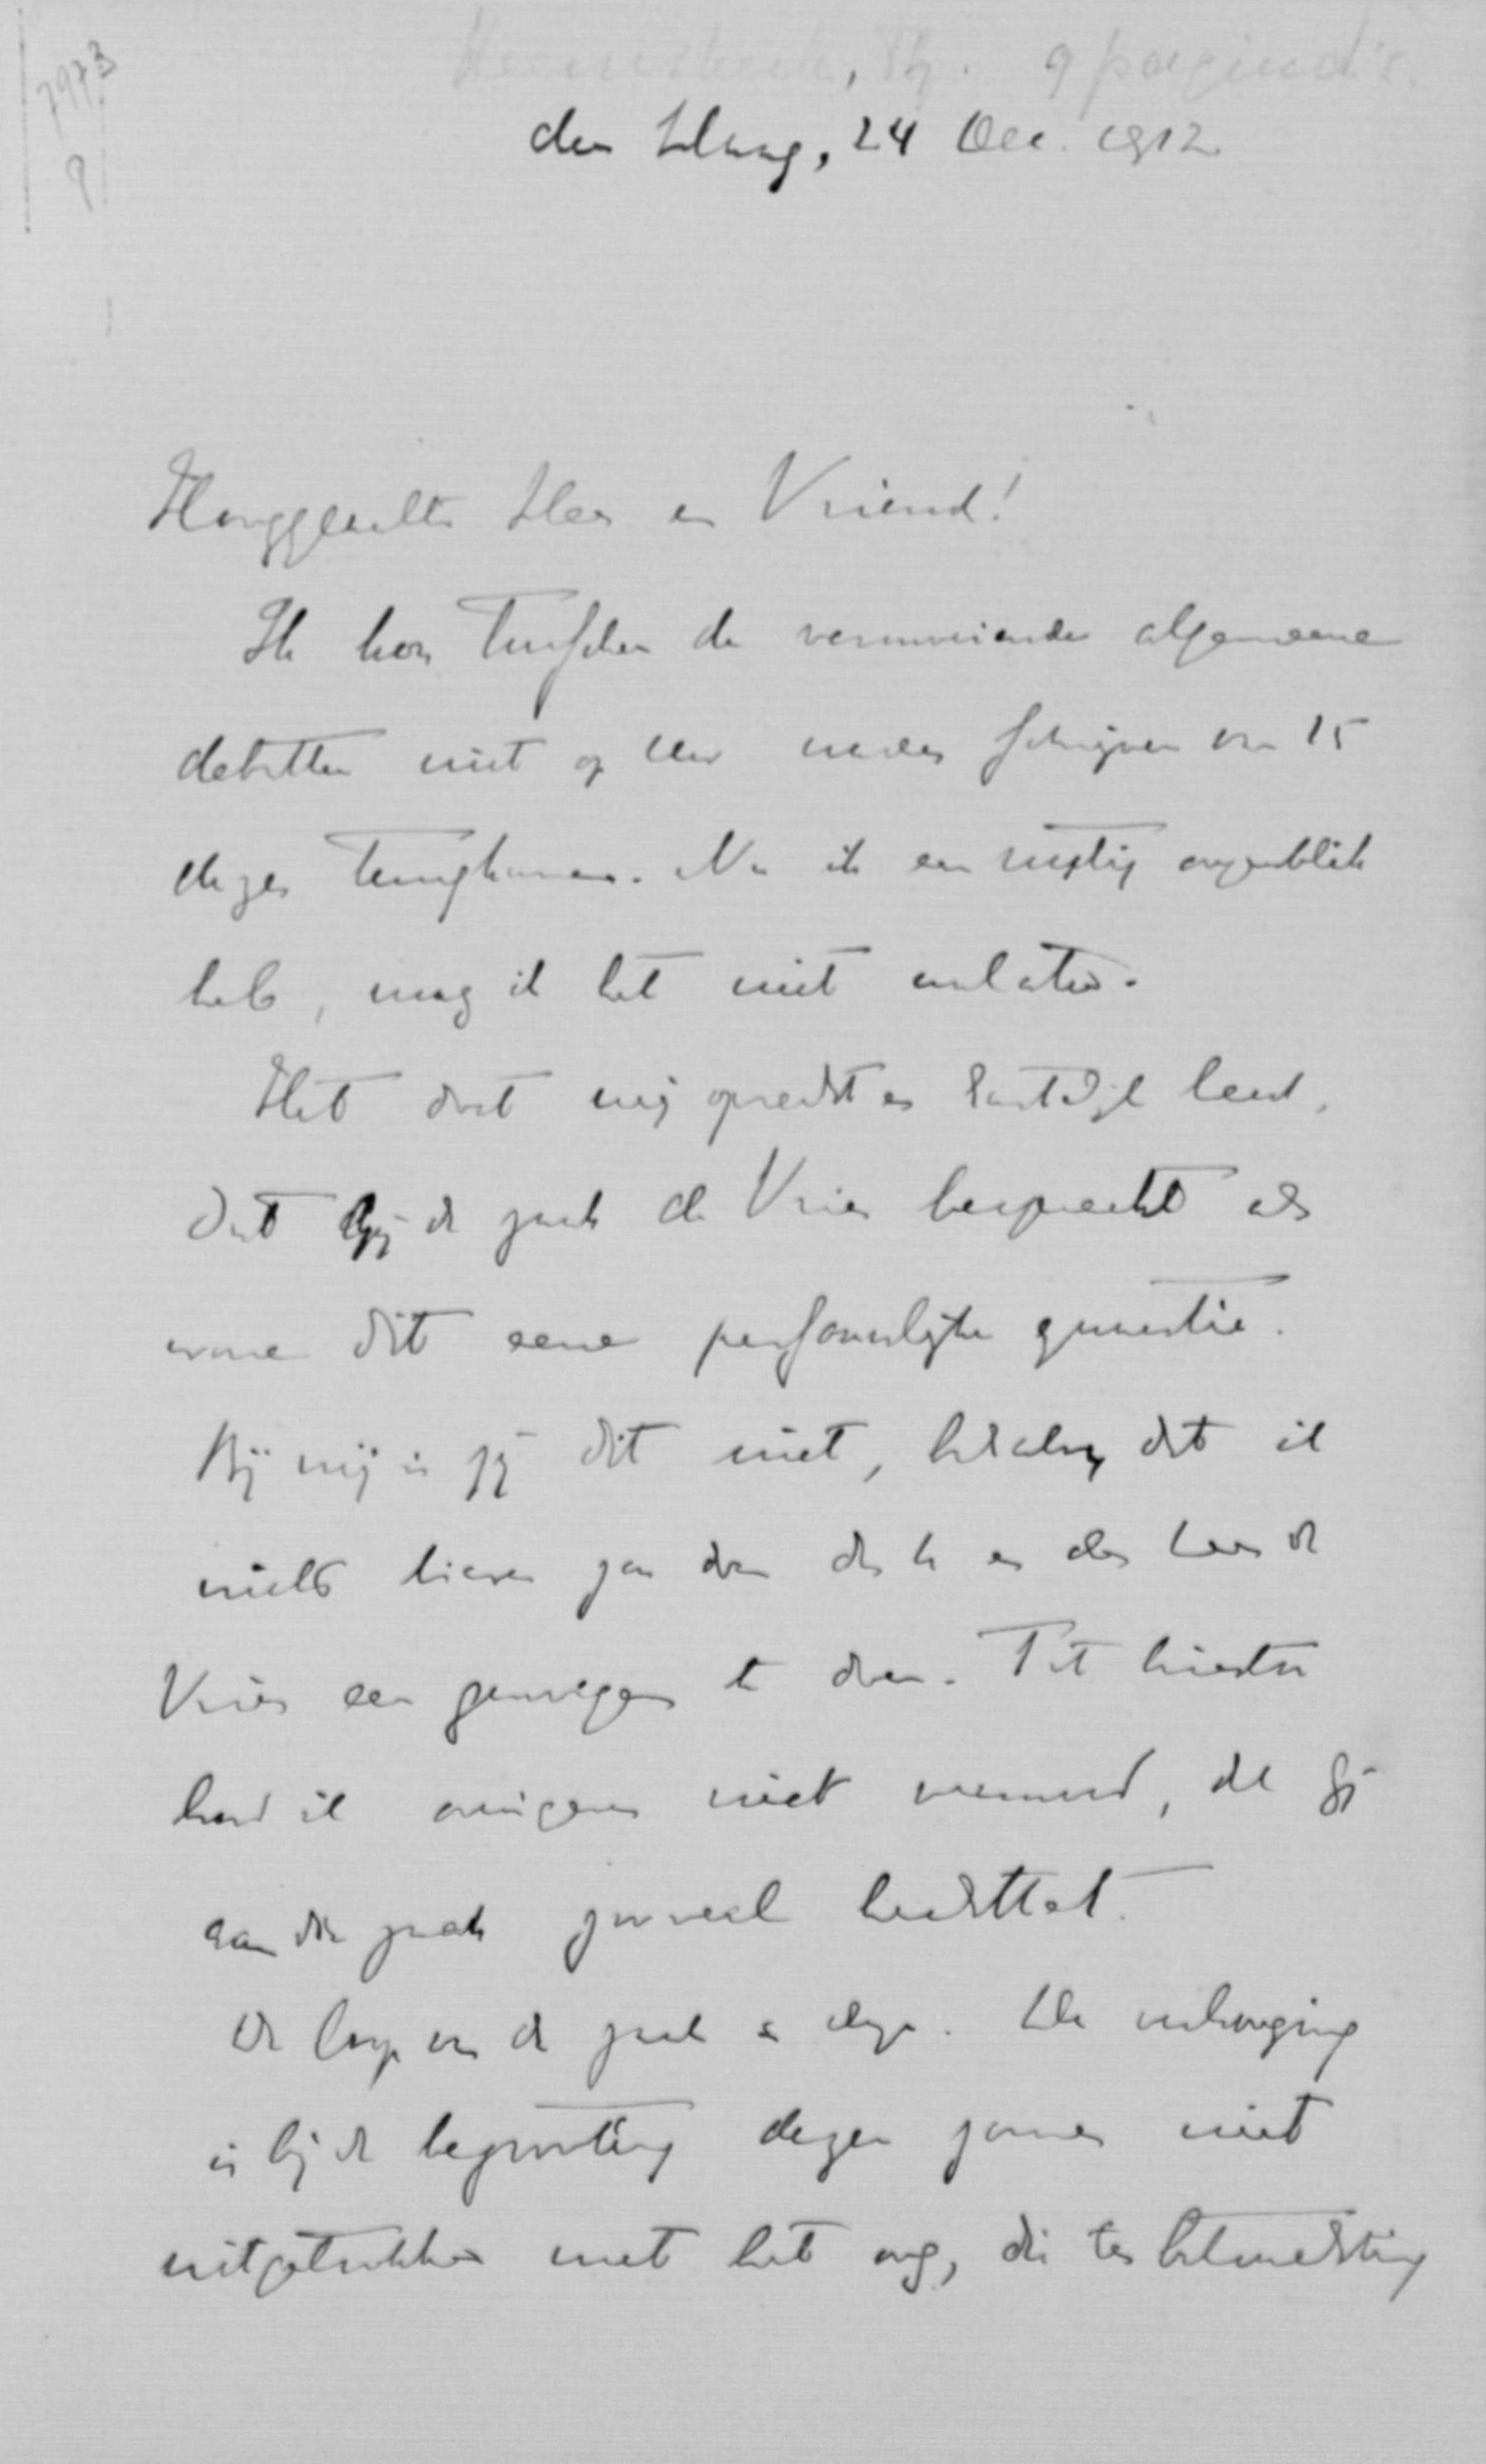 7973
9
Heemskerk, Th. 9 pagina's.
den Haag, 24 Dec. 1912
Hooggeachte Heer en Vriend!
Ik kon tusschen de vermoeiende algemeene
debatten niet op Uw nader schrijven van 15
dezer terugkomen. Nu ik een rustig oogenblik
heb, mag ik het niet nalaten.
Het doet mij oprecht en hartelijk leed,
dat Gij de zaak de Vries bespreekt als
ware dit eene persoonlijke quaestie.
Bij mij is zij dit niet, behalve dat ik
niets liever zou dan U en den heer de
Vries een genoegen te doen. Tot hiertoe
had ik overigens niet vermoed, dat Gij
aan die zaak zooveel hechttet.
De loop van de zaak is deze. De verhooging
is bij de begrooting dezen zomer niet
uitgetrokken met het oog, die ter bekrachtiging